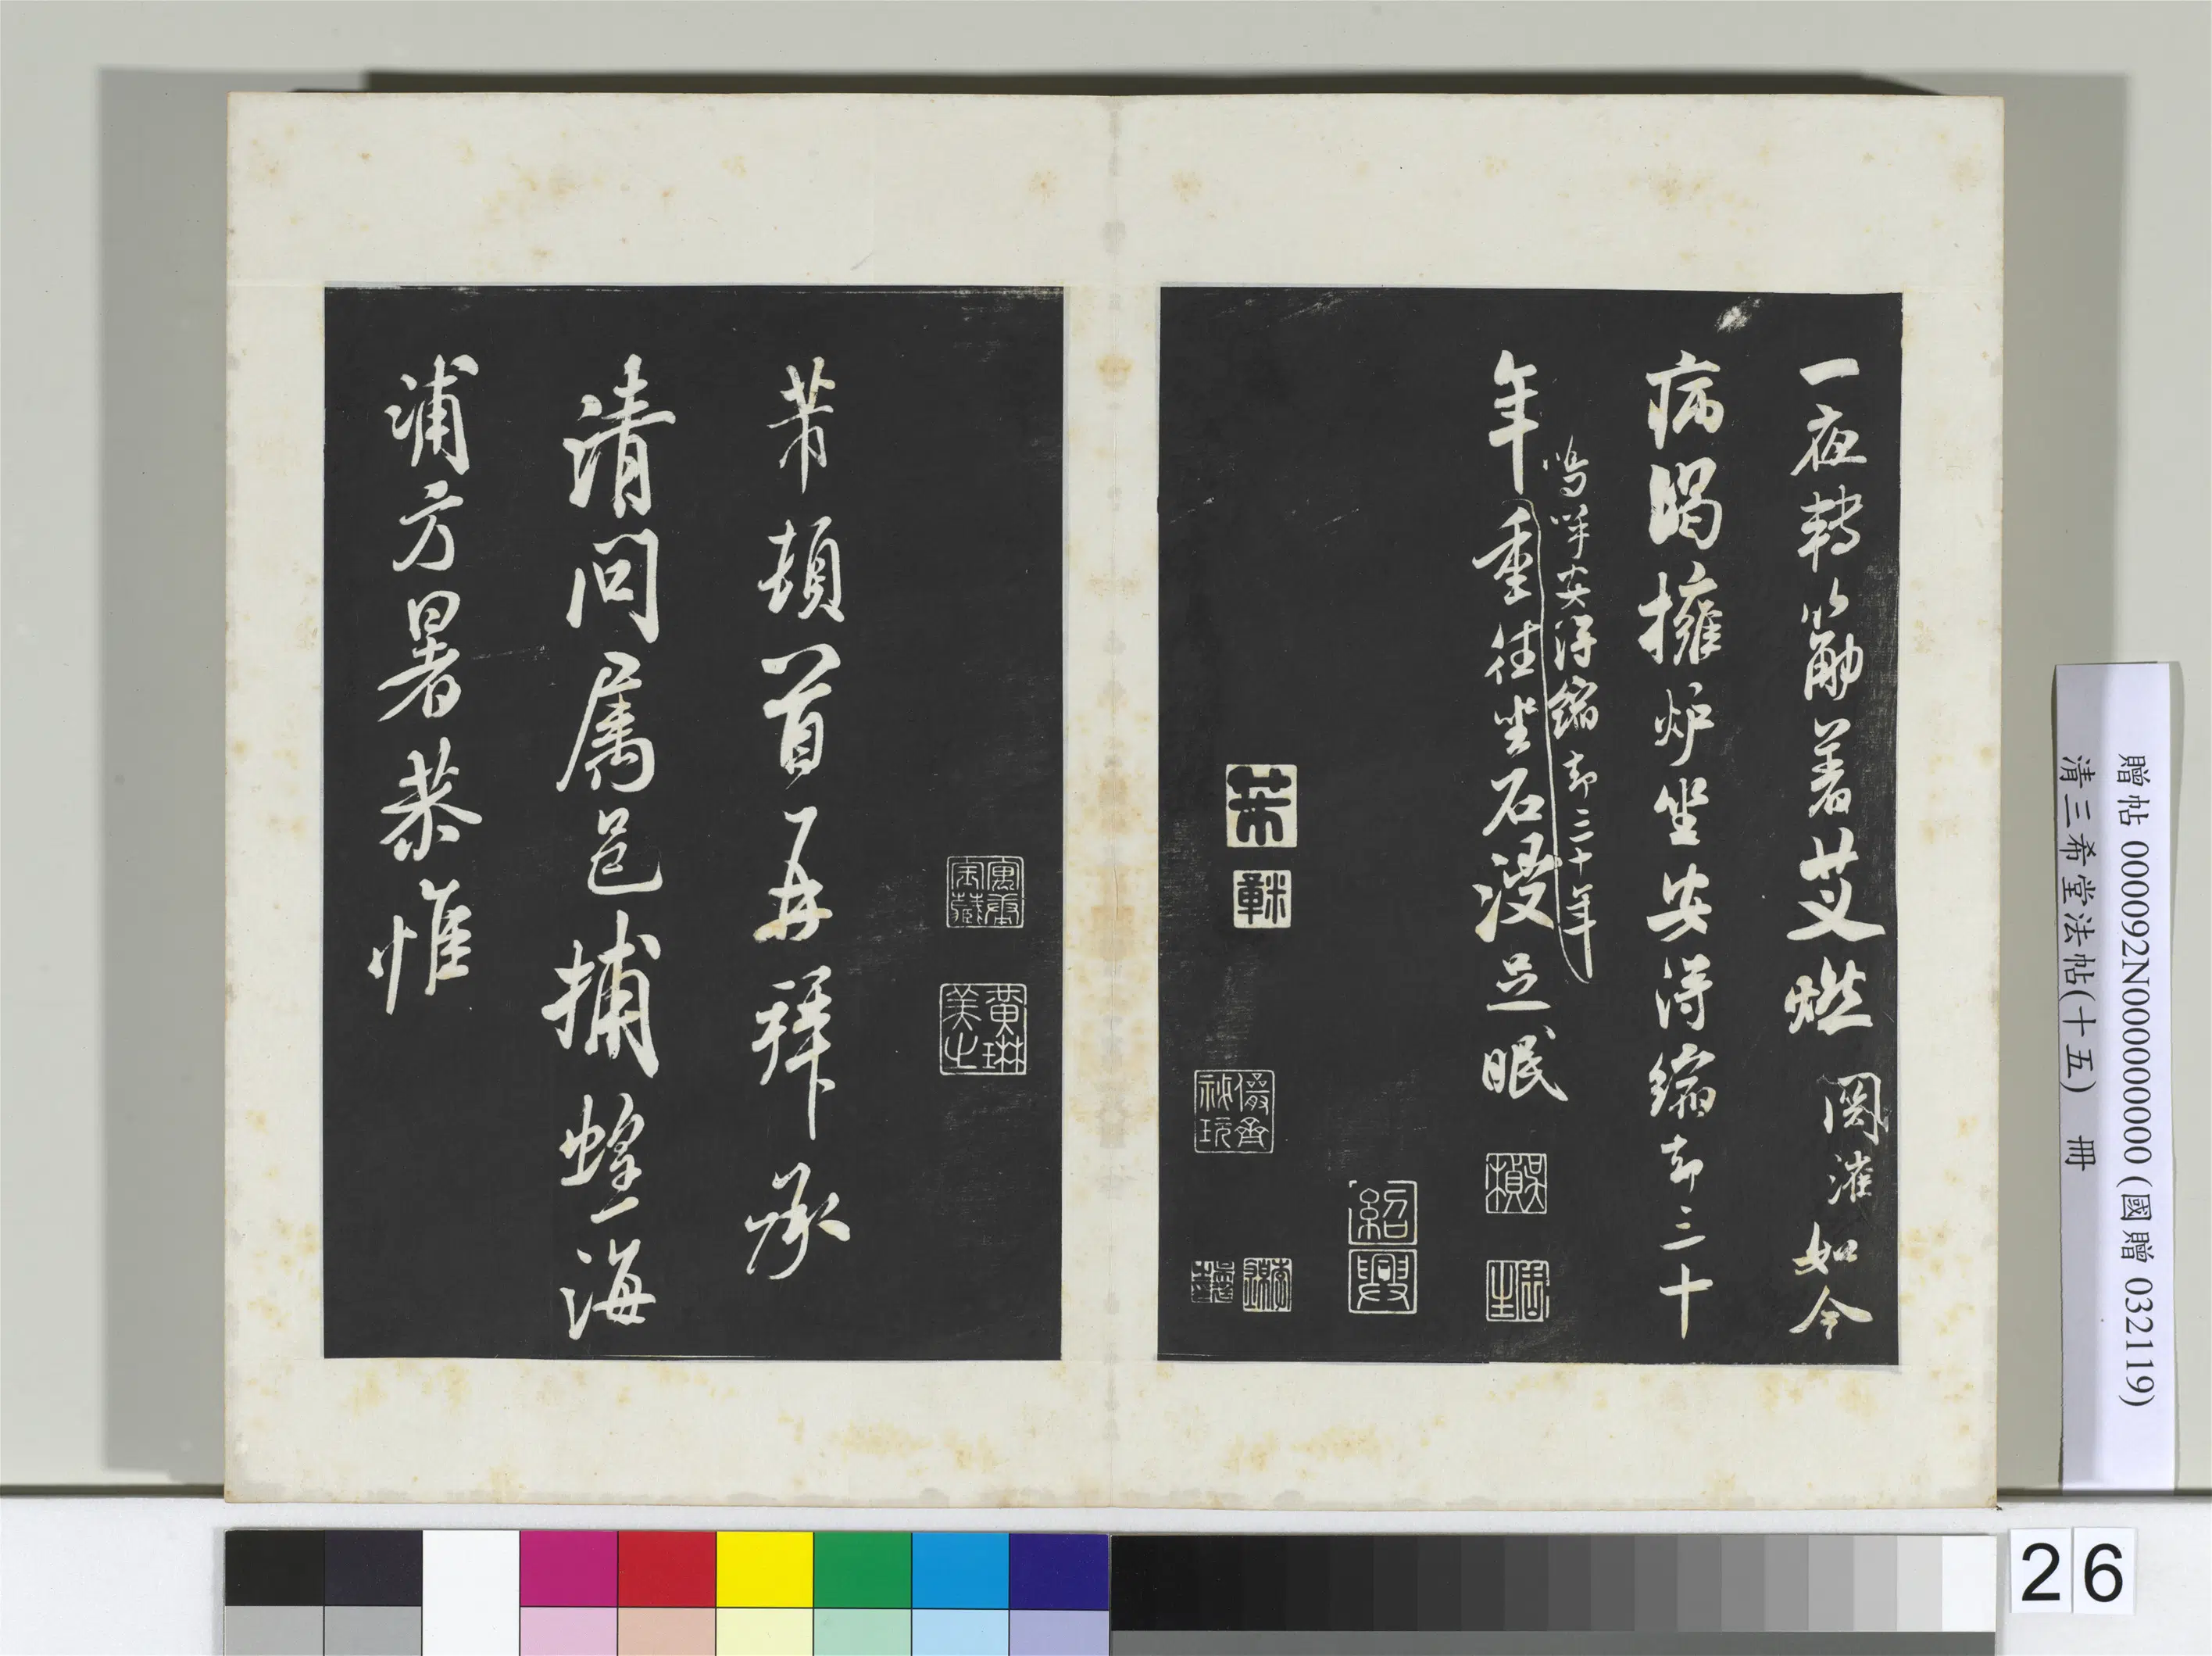 一夜轉筋著艾燃關灌如今
病暍擁爐坐安得縮却三十
嗚呼安得縮却三十年
年重往坐石浸足眠
紹興
芾頓首再拜承
黃琳美之
清問屬邑捕蝗海
浦方暑恭惟
贈帖 000092N000000000 (國贈 032119)
清三希堂法帖(十五) 冊
26